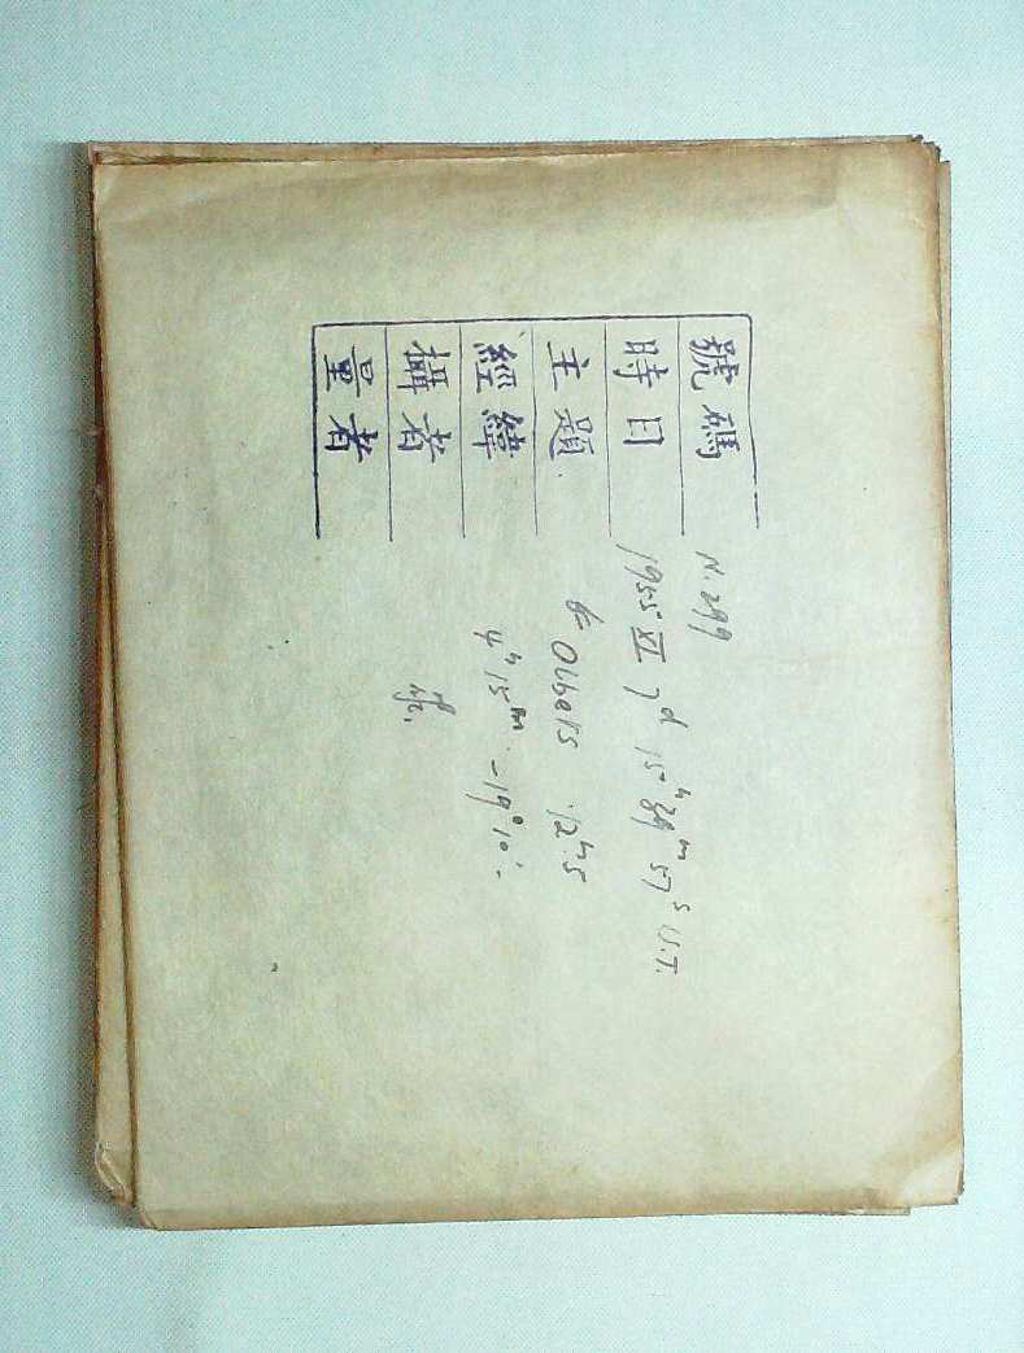 號碼 N. 299
時日 1955 XI 7d 15h 39m 57s U.T.
主題 Olbers 12h.5
經緯 4h 15m -19° 10'
攝者
量者